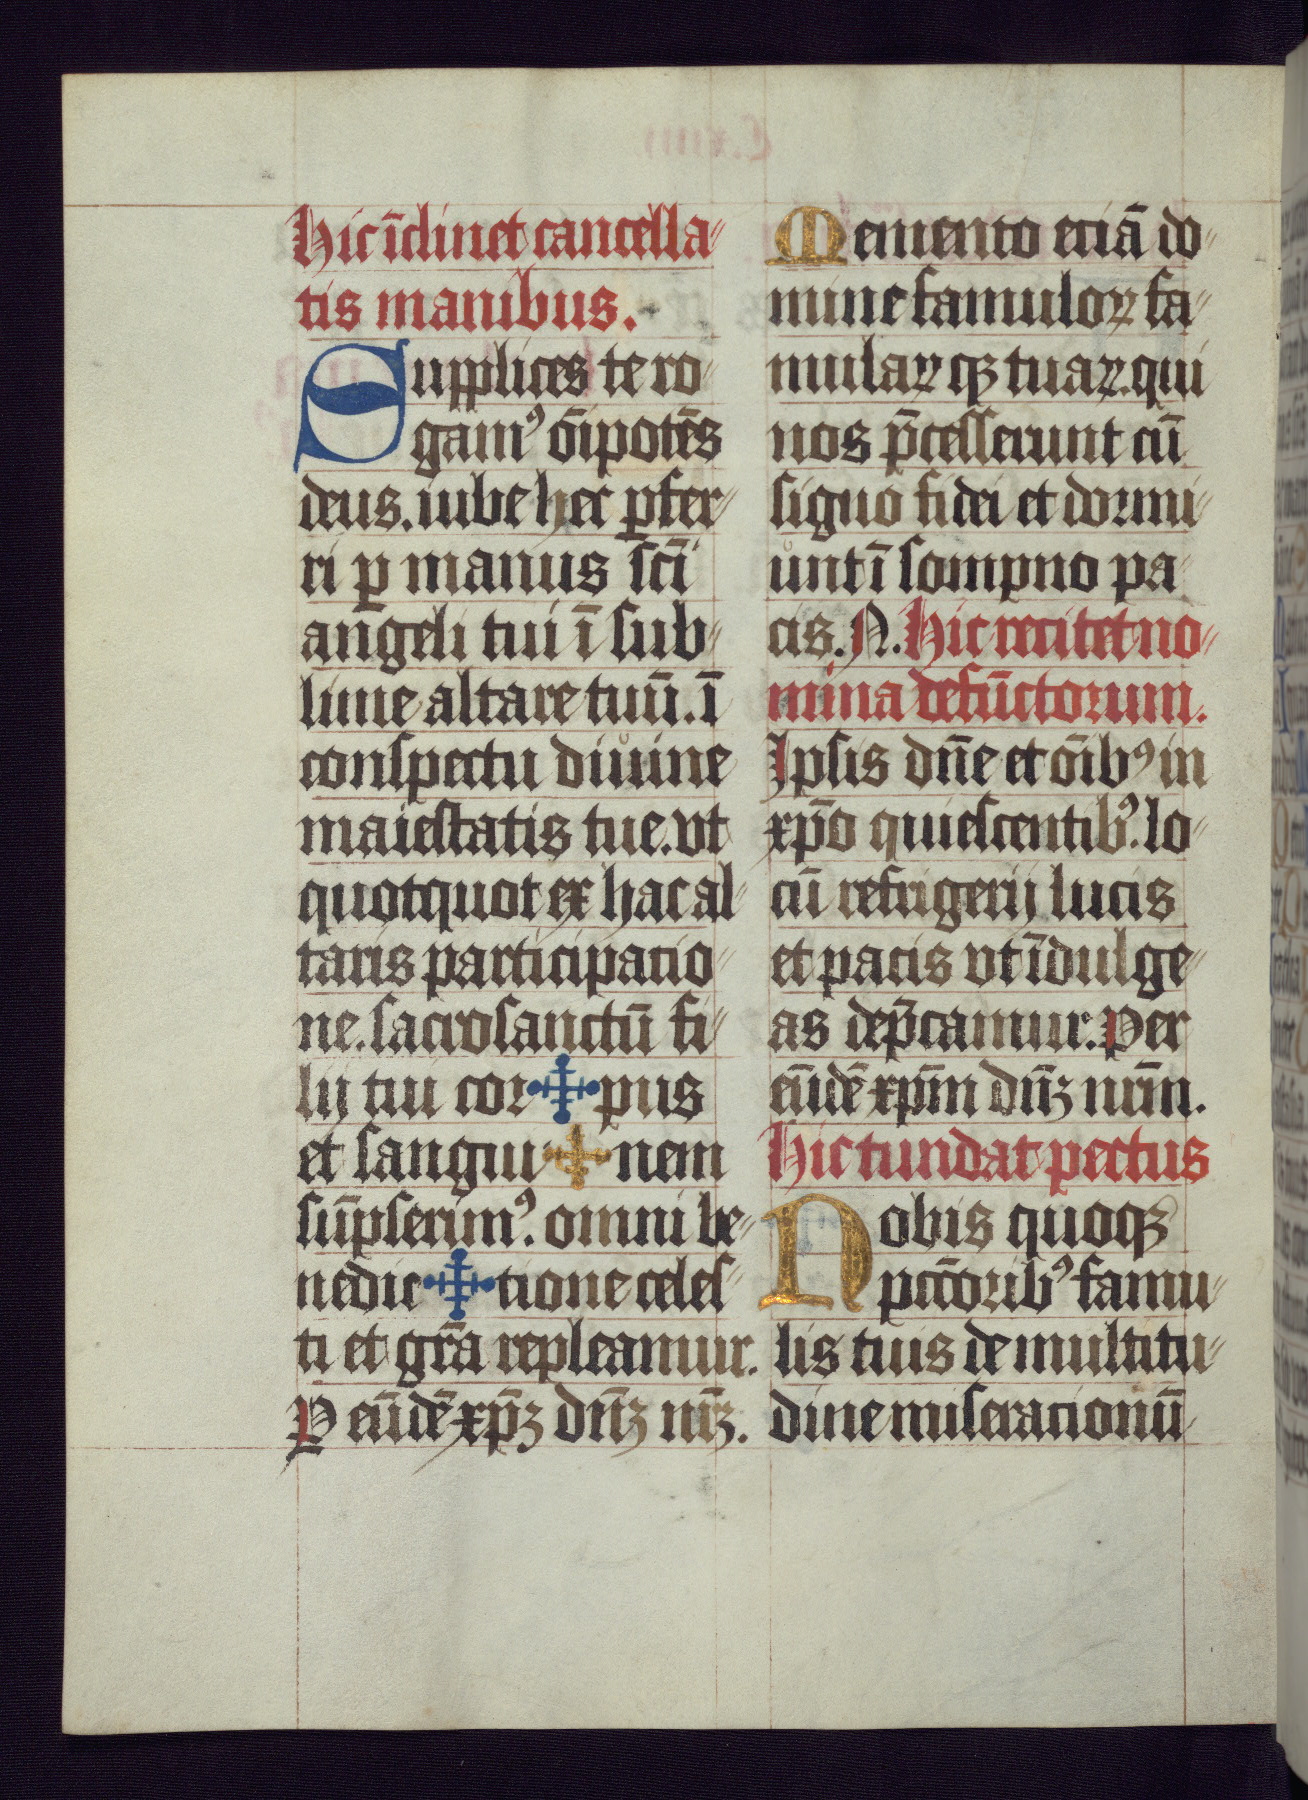 Hic īclinet cancella⸗
tis manibus.
Supplices te ro⸗
gamꝰ o̅ipote̅s
deus. iube hec ꝑfer⸗
ri ꝑ manus sc̅i
angeli tui ī sub⸗
lime altare tuū. ī
conspectu diuine
maiestatis tue. vt
quotquot ex hac al⸗
taris participatio⸗
ne. sacrosanctū fi⸗
lij tui cor✠pus
et sangui✠nem
sūpserimꝰ. omni be⸗
nedic✠tione celes⸗
ti et gr̅a repleamur.
P eūdē xp̅ꝫ dn̅ꝫ nr̅ꝫ.
Memento eciā do⸗
mine famuloꝝ fa⸗
mulaꝝ qꝫ tuaꝝ. qui
nos p̅cesserunt cū
signo fidei et dormi⸗
unt ī sompno pa⸗
cis. N. Hic recitet no⸗
mina defūctorum.
Ipsis dn̅e et o̅ibꝰ in
xp̅o quiescentibꝰ. lo⸗
cū refrigerij lucis
et pacis vt īdulge⸗
as dep̅camur. Per
eūdē xp̅m dn̅ꝫ nr̅m.
Hic tundat pectus
Nobis quoqꝫ
pcc̅oribꝰ famu⸗
lis tuis de multitu⸗
dine miseracionū